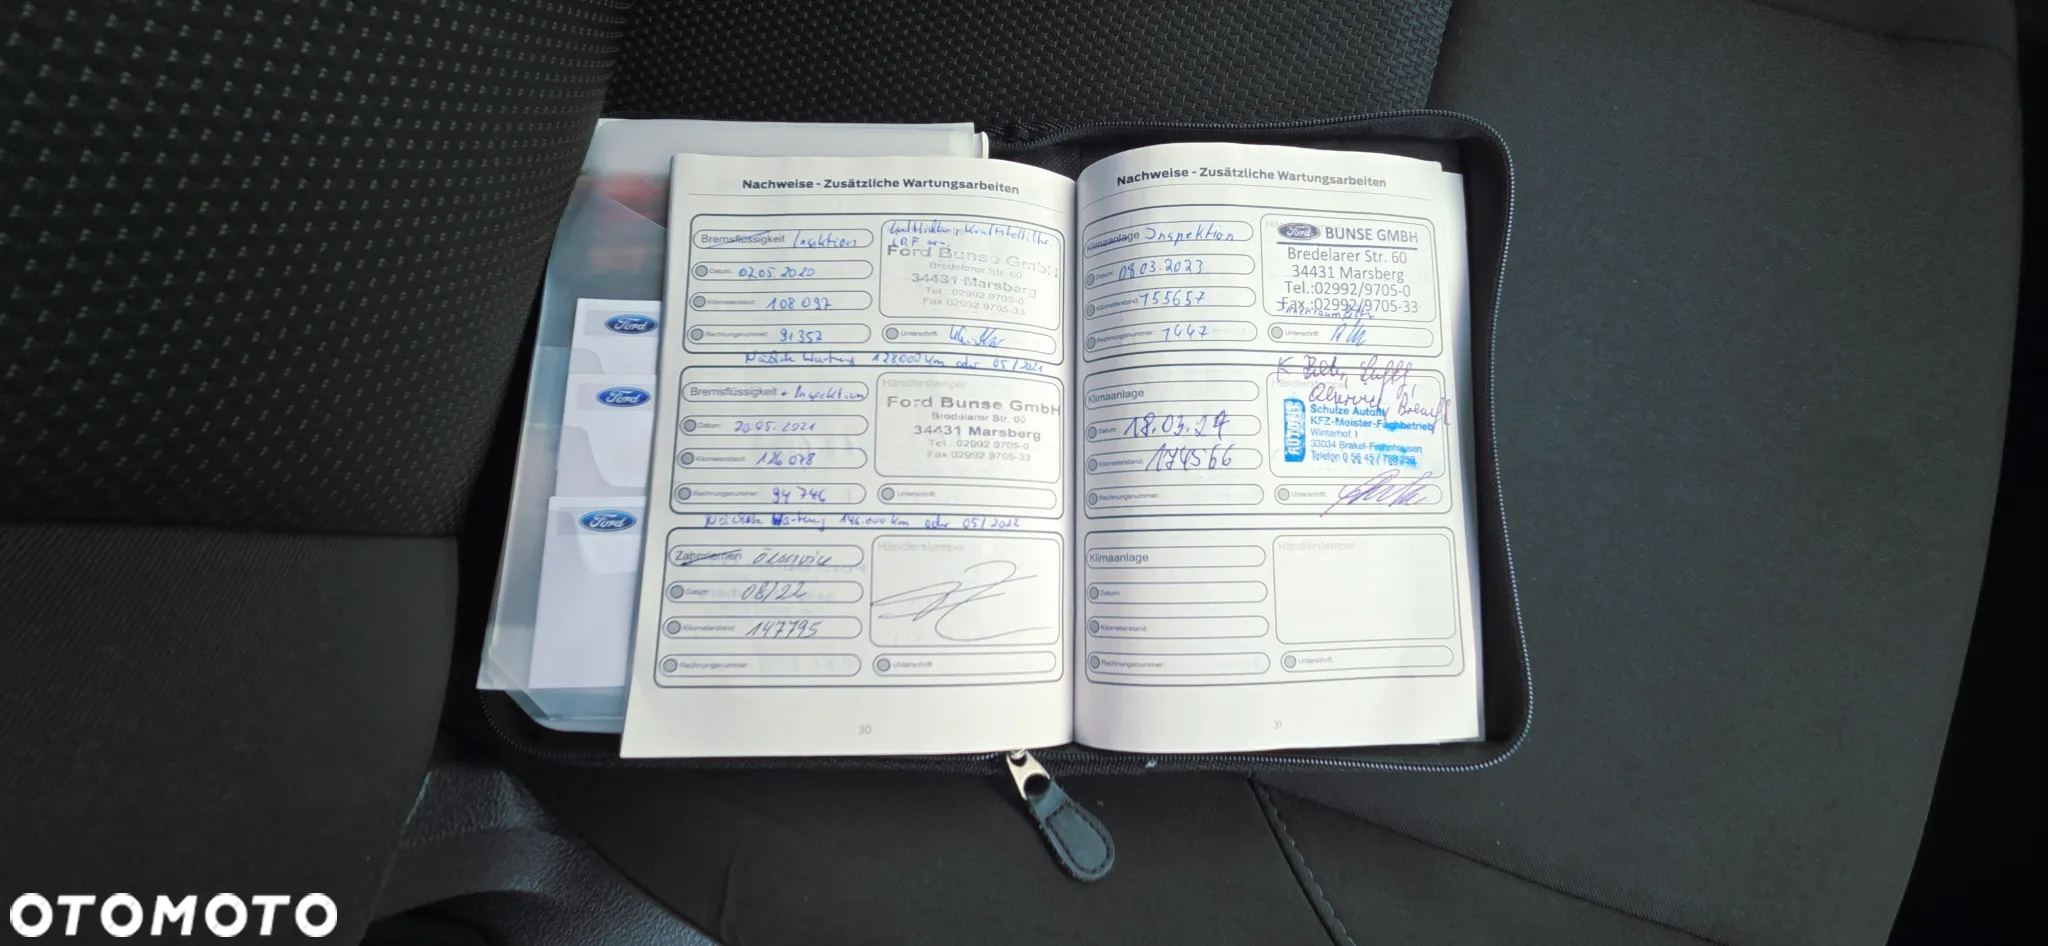 Nachweise - Zusätzliche Wartungsarbeiten
Bremsflüssigkeit Inspektion
Datum: 07.05.2020
Kilometerstand: 108 097
Rechnungsnummer: 91357
Ford Bunse GmbH
Bredelarer Str. 60
34431 Marsberg
Tel.: 02992 9705-0
Fax 02992 9705-33
Unterschrift:
Nächste Wartung 128000 km oder 05/2021
Bremsflüssigkeit + Inspektion
Datum: 20.05.2021
Kilometerstand: 126 078
Rechnungsnummer: 94 746
Händlerstempel
Ford Bunse GmbH
Bredelarer Str. 60
34431 Marsberg
Tel.: 02992 9705-0
Fax 02992 9705-33
Unterschrift:
Nächste Wartung 146.000 km oder 05/2022
Zahnriemen Ölservice
Datum: 08/22
Kilometerstand: 147795
Rechnungsnummer:
Händlerstempel
Unterschrift:
30
Nachweise - Zusätzliche Wartungsarbeiten
Klimaanlage Inspektion
Datum: 08.03.2023
Kilometerstand: 155657
Rechnungsnummer: 1447
Ford BUNSE GMBH
Bredelarer Str. 60
34431 Marsberg
Tel.:02992/9705-0
Fax.:02992/9705-33
Innenraumfilter
Unterschrift:
Klimaanlage
Datum: 18.03.24
Kilometerstand: 174566
Rechnungsnummer:
Händlerstempel
AUTOHS
Schulze Autofit
KFZ-Meister-Fachbetrieb
Winterhof 1
33034 Brakel-Frohnhausen
Telefon 0 56 45 /
Unterschrift:
Klimaanlage
Datum:
Kilometerstand:
Rechnungsnummer:
Händlerstempel
Unterschrift:
31
Ford
Ford
Ford
OTOMOTO